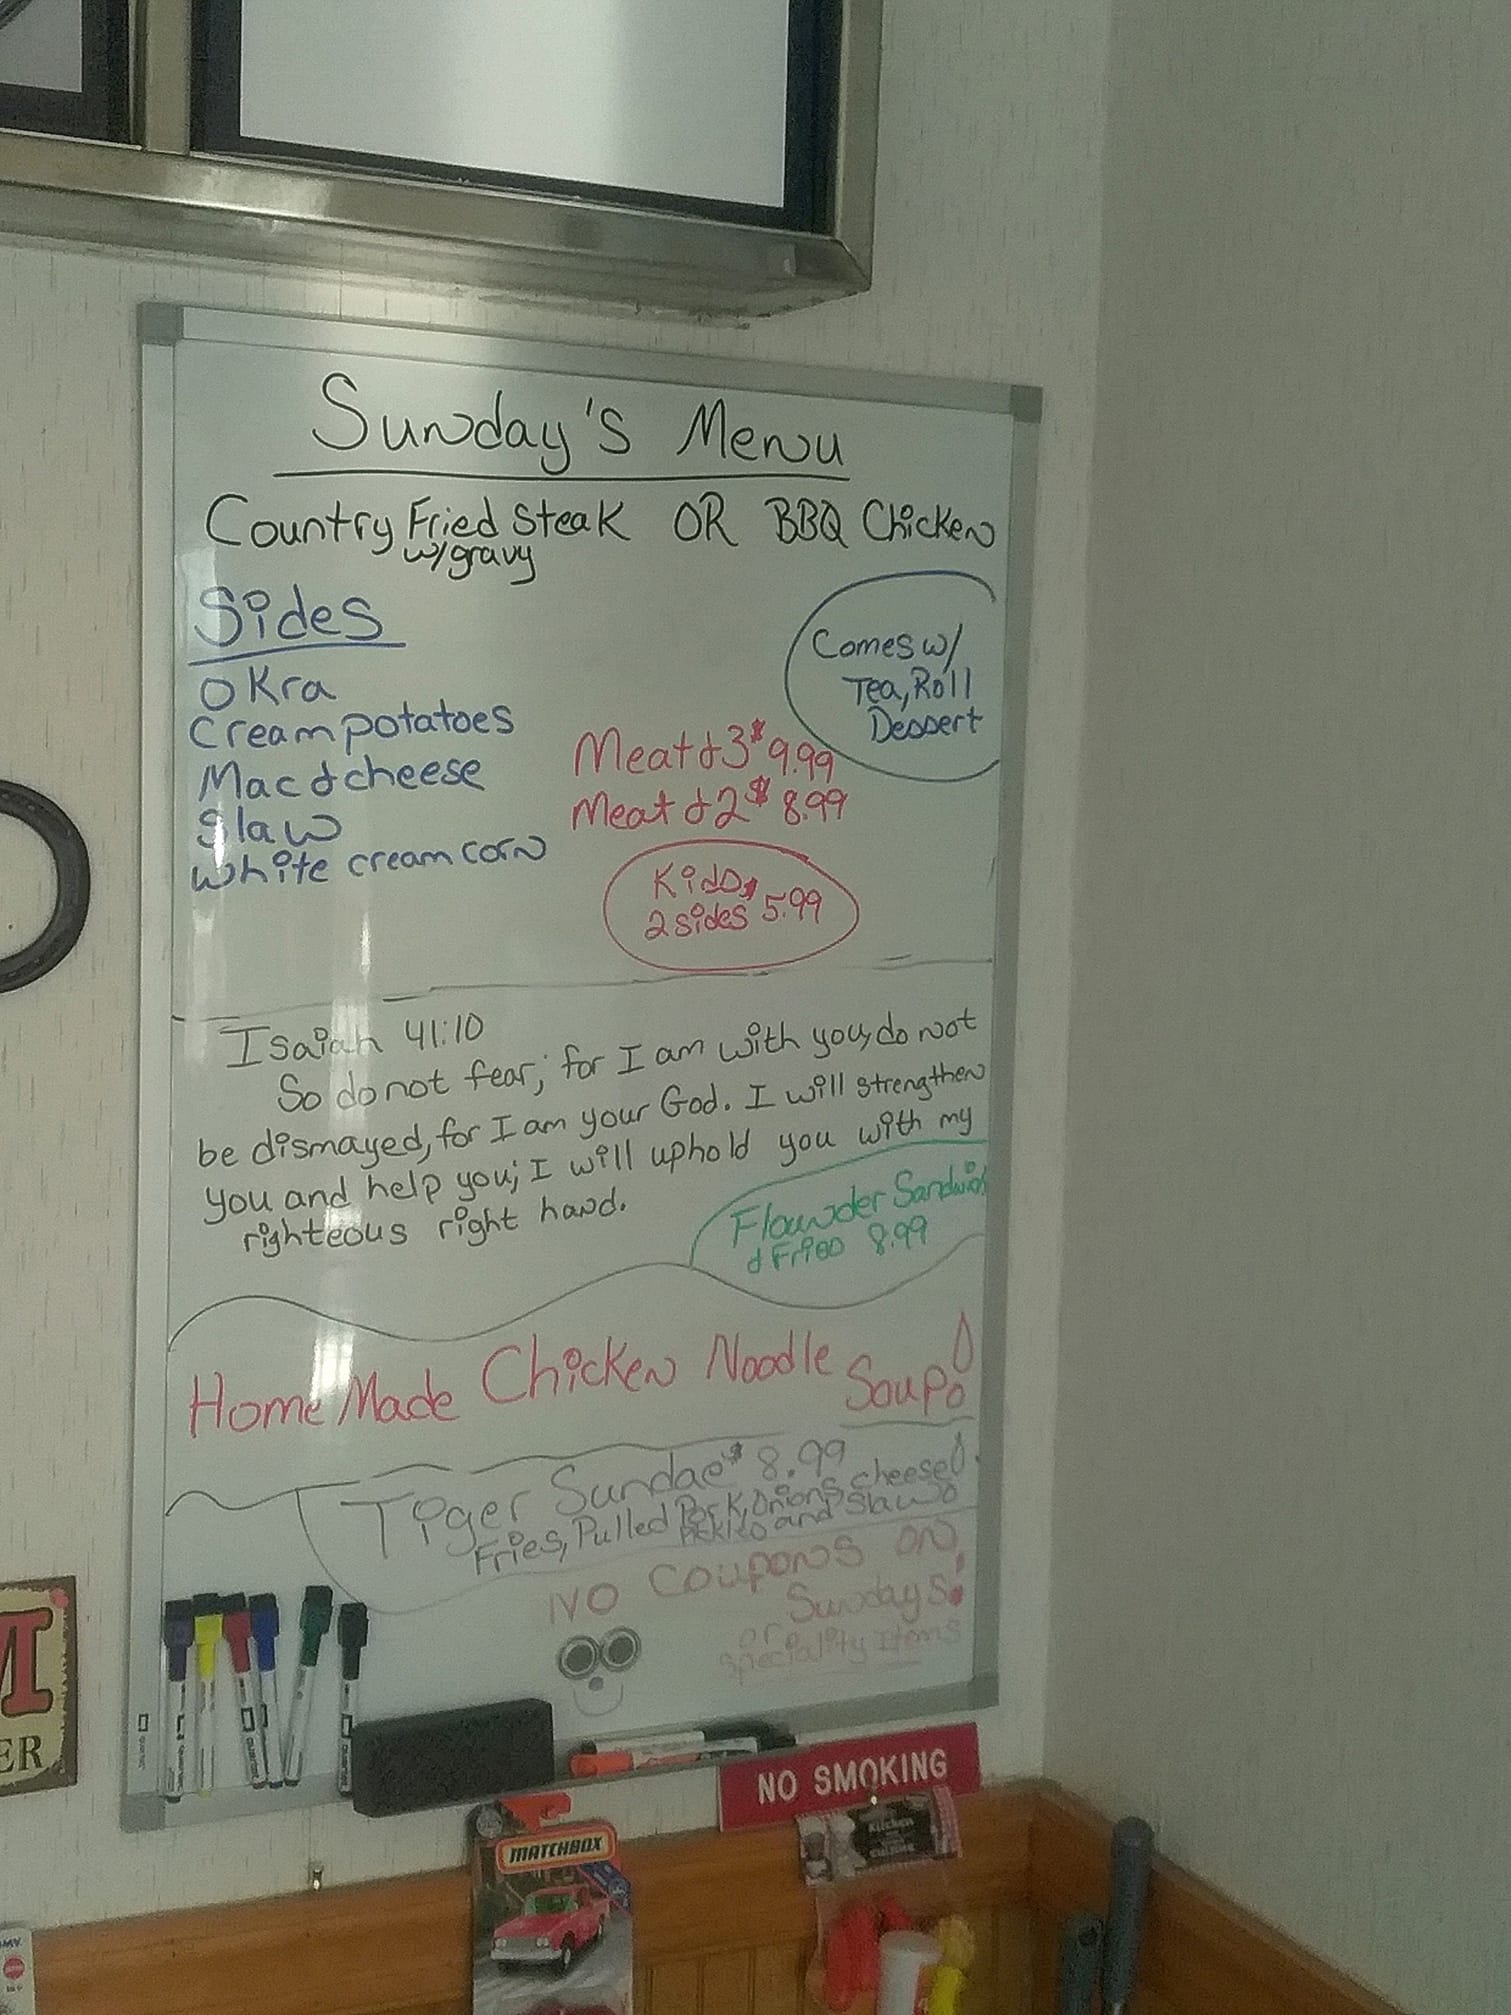 Sunday's Menu
Country Fried Steak OR BBQ Chicken
w/gravy
Sides
Okra
Cream potatoes
Mac & cheese
Slaw
White cream corn
Comes w/
Tea, Roll
Dessert
Meat & 3 $9.99
Meat & 2 $8.99
Kids
2 sides $5.99
Isaiah 41:10
So do not fear, for I am with you, do not
be dismayed, for I am your God. I will strengthen
you and help you; I will uphold you with my
righteous right hand.
Flounder Sandwich
& Fries 8.99
Home Made Chicken Noodle
Soup
Tiger Sundae $8.99
Fries, Pulled Pork, Onions, cheese
Pickles and Slaw
NO Coupons ON
Sundays!
or
Speciality Items
NO SMOKING
MATCHBOX
Kitchen
M
ER